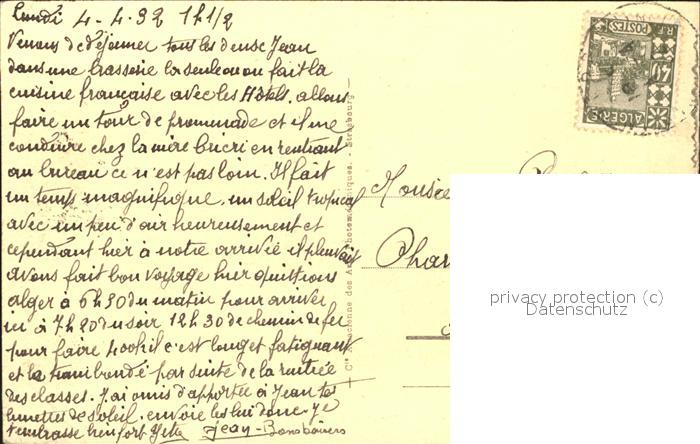 Lundi 4-4-32 1h1/2
Venons de déjeuner tous les deux Jean
dans une brasserie la seule ou on fait la
cuisine française avec les Hôtels. allons
faire un tour de promenade et il me
conduire chez la mère en rentrant
au bureau ce n'est pas loin. Il fait
un temps magnifique, un soleil tropical
avec un peu d'air heureusement et
cependant hier à notre arrivée il pleuvait
avons fait bon voyage hier quittions
alger à 6h30 du matin pour arriver
ici à 7h20 du soir 12h30 de chemin de fer
pour faire 400kil c'est long et fatiguant
et le tram bondé par suite de la rentrée
des classes. J'ai omis d'apporter à Jean tes
lunettes de soleil. envoie les lui donc. Je
t'embrasse bien fort Jean - Bons baisers
Cie des Arts Photomécaniques. - Strasbourg
R.F. POSTES
40
ALGERIE
Phar
privacy protection (c)
Datenschutz